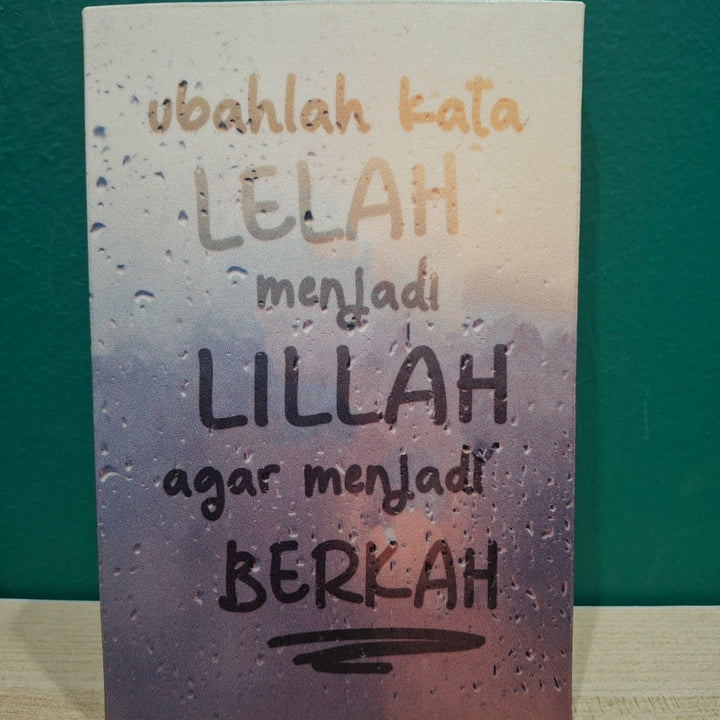 ubahlah kata
LELAH
menjadi
LILLAH
agar menjadi
BERKAH